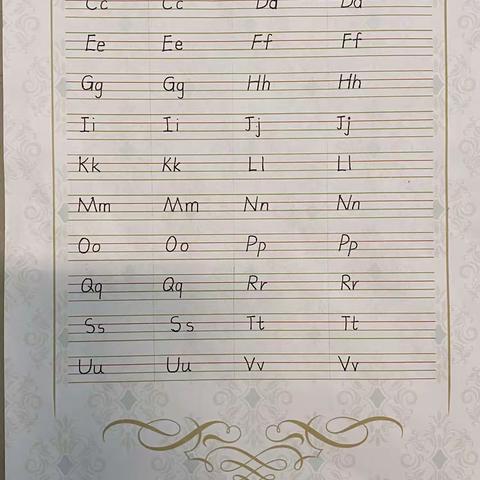 Cc Cc Dd Dd
Ee Ee Ff Ff
Gg Gg Hh Hh
Ii Ii Jj Jj
Kk Kk Ll Ll
Mm Mm Nn Nn
Oo Oo Pp Pp
Qq Qq Rr Rr
Ss Ss Tt Tt
Uu Uu Vv Vv